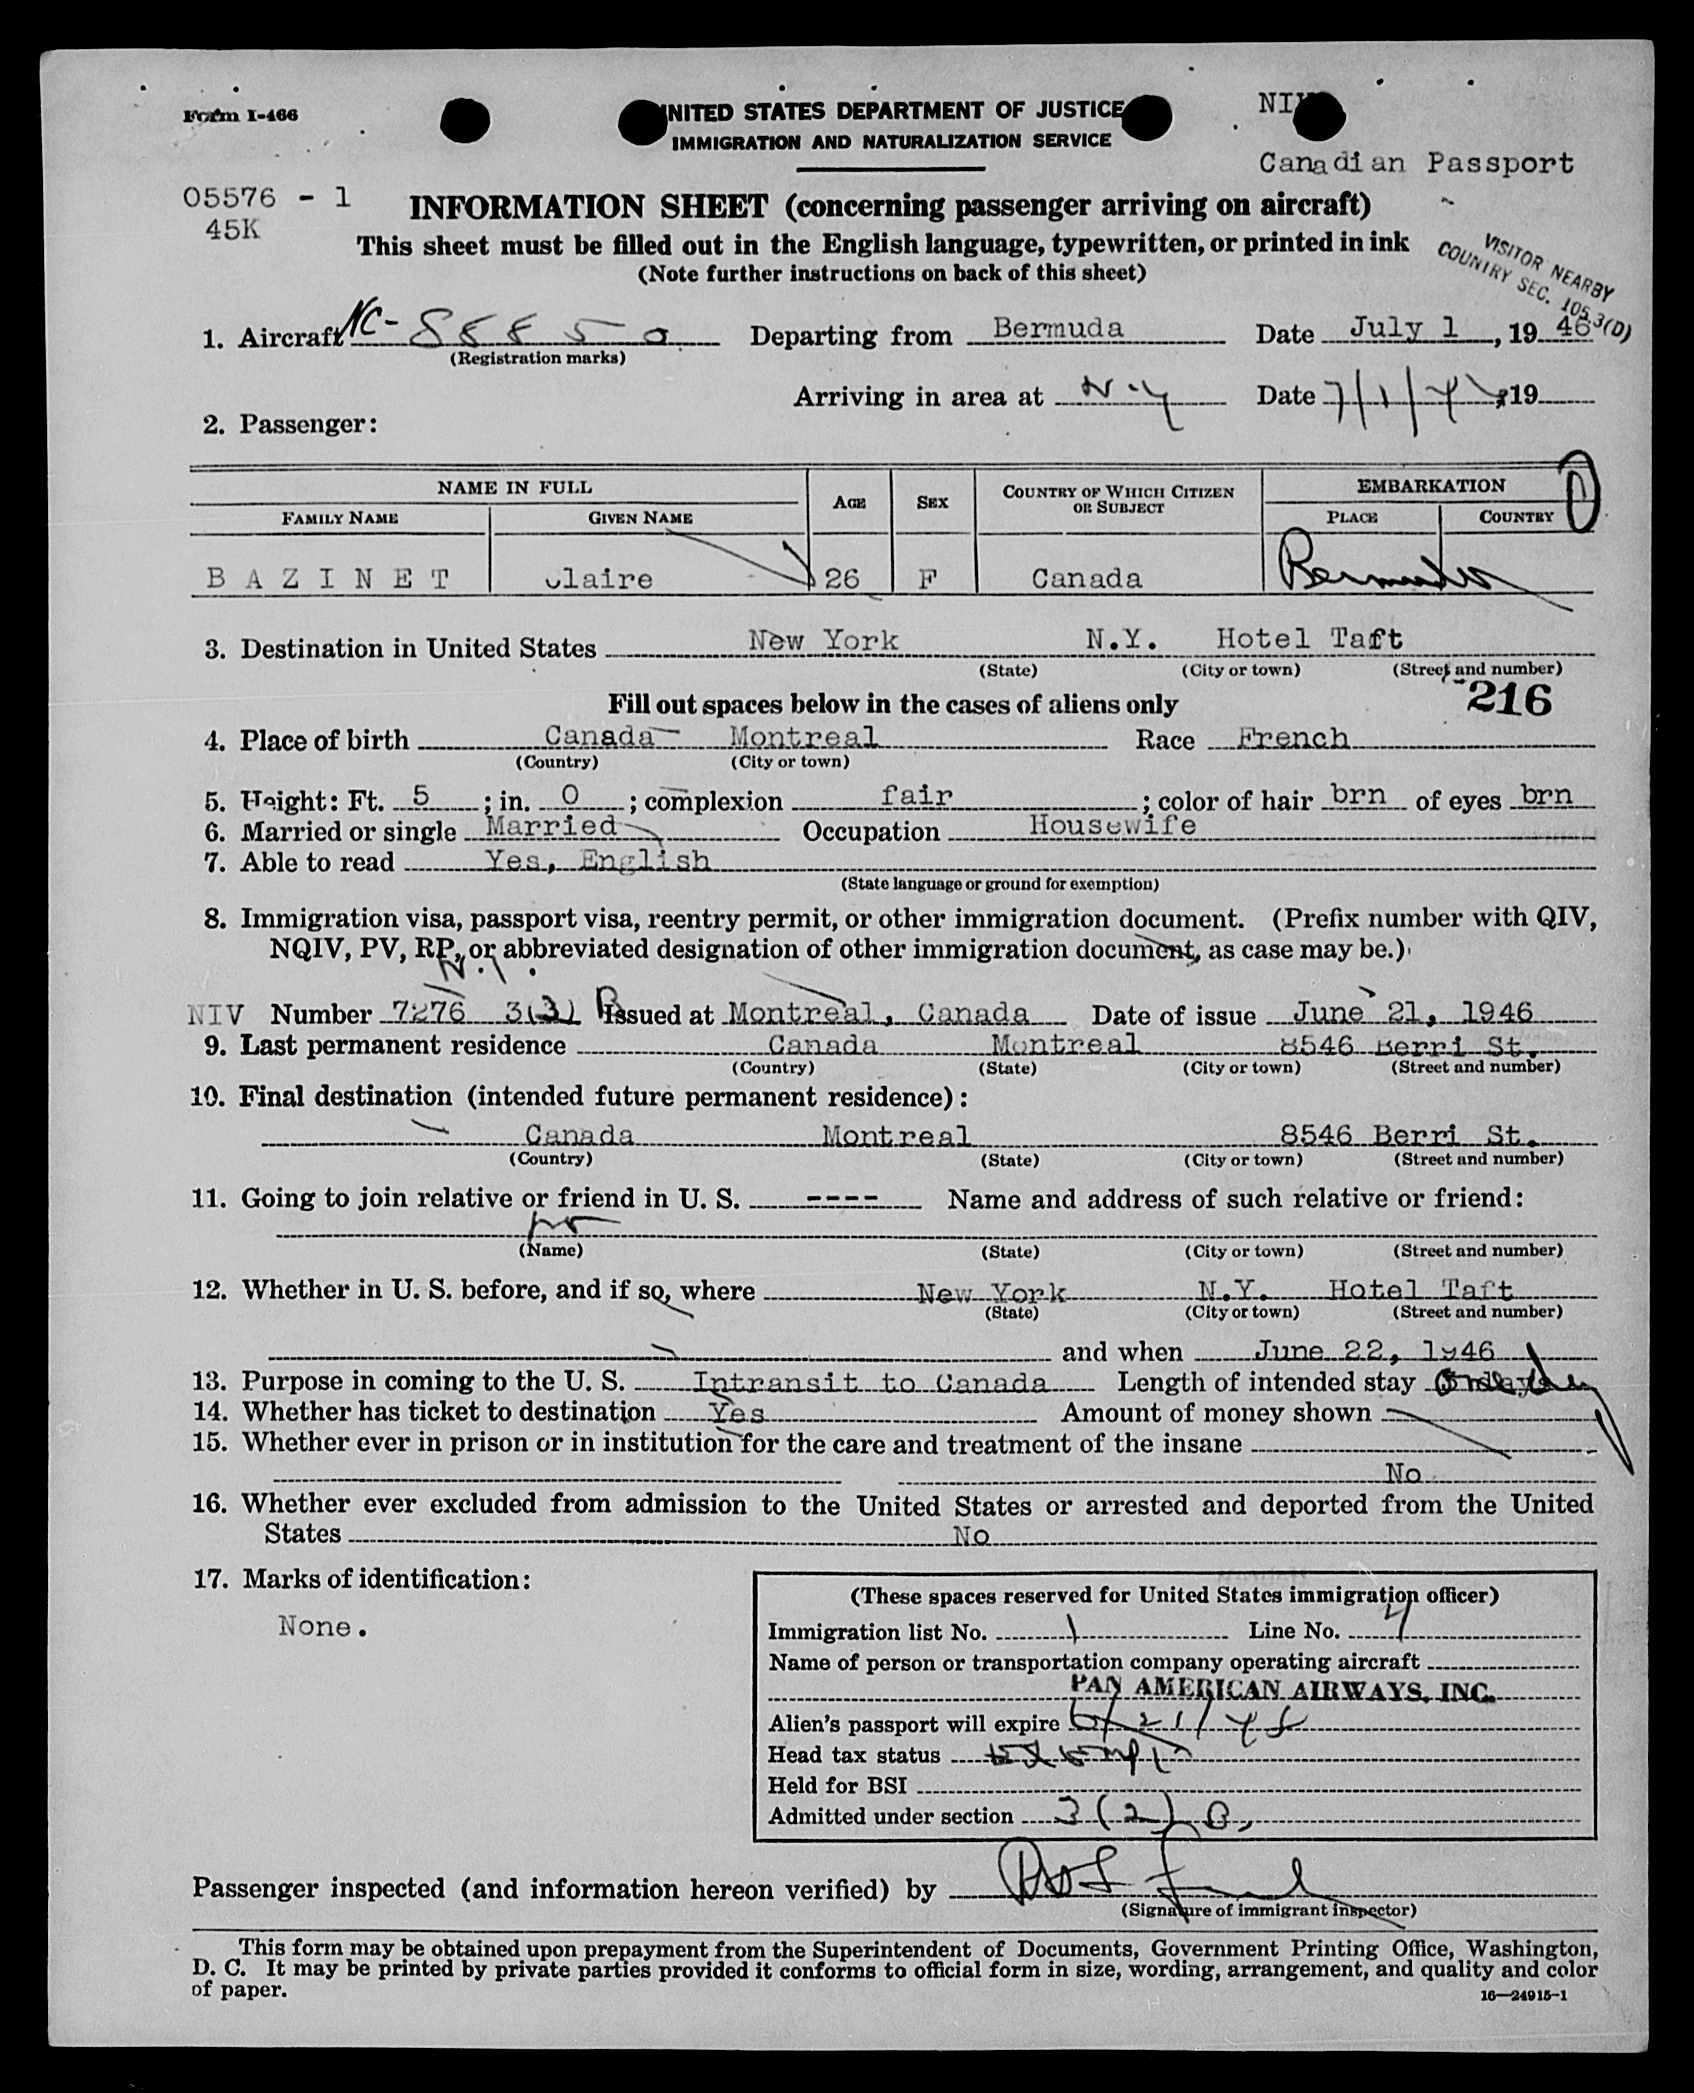 Form I-466
UNITED STATES DEPARTMENT OF JUSTICE
IMMIGRATION AND NATURALIZATION SERVICE
NIV
Canadian Passport
05576 - 1
45K
INFORMATION SHEET (concerning passenger arriving on aircraft)
This sheet must be filled out in the English language, typewritten, or printed in ink
(Note further instructions on back of this sheet)
VISITOR NEARBY
COUNTRY SEC. 105.3(D)
1. Aircraft NC-88850 Departing from Bermuda Date July 1, 1946
(Registration marks)
Arriving in area at N.Y Date 7/1/4 , 19
2. Passenger:
NAME IN FULL AGE SEX COUNTRY OF WHICH CITIZEN OR SUBJECT EMBARKATION
FAMILY NAME GIVEN NAME PLACE COUNTRY
BAZINET Claire 26 F Canada Bermuda
3. Destination in United States New York N.Y. Hotel Taft
(State) (City or town) (Street and number)
216
Fill out spaces below in the cases of aliens only
4. Place of birth Canada Montreal Race French
(Country) (City or town)
5. Height: Ft. 5 ; in. 0 ; complexion fair ; color of hair brn of eyes brn
6. Married or single Married Occupation Housewife
7. Able to read Yes, English
(State language or ground for exemption)
8. Immigration visa, passport visa, reentry permit, or other immigration document. (Prefix number with QIV,
NQIV, PV, RP, or abbreviated designation of other immigration document, as case may be.)
NIV Number 7276 3(3) Issued at Montreal, Canada Date of issue June 21, 1946
9. Last permanent residence Canada Montreal 8546 Berri St.
(Country) (State) (City or town) (Street and number)
10. Final destination (intended future permanent residence):
Canada Montreal 8546 Berri St.
(Country) (State) (City or town) (Street and number)
11. Going to join relative or friend in U. S. ---- Name and address of such relative or friend:
no
(Name) (State) (City or town) (Street and number)
12. Whether in U. S. before, and if so, where New York N.Y. Hotel Taft
(State) (City or town) (Street and number)
and when June 22, 1946
13. Purpose in coming to the U. S. Intransit to Canada Length of intended stay
14. Whether has ticket to destination Yes Amount of money shown
15. Whether ever in prison or in institution for the care and treatment of the insane
No
16. Whether ever excluded from admission to the United States or arrested and deported from the United
States No
17. Marks of identification:
None.
(These spaces reserved for United States immigration officer)
Immigration list No. 1 Line No. 4
Name of person or transportation company operating aircraft
PAN AMERICAN AIRWAYS, INC.
Alien's passport will expire 6/21/48
Head tax status Exempt
Held for BSI
Admitted under section 3(2) B,
Passenger inspected (and information hereon verified) by
(Signature of immigrant inspector)
This form may be obtained upon prepayment from the Superintendent of Documents, Government Printing Office, Washington,
D. C. It may be printed by private parties provided it conforms to official form in size, wording, arrangement, and quality and color
of paper.
16—24915-1